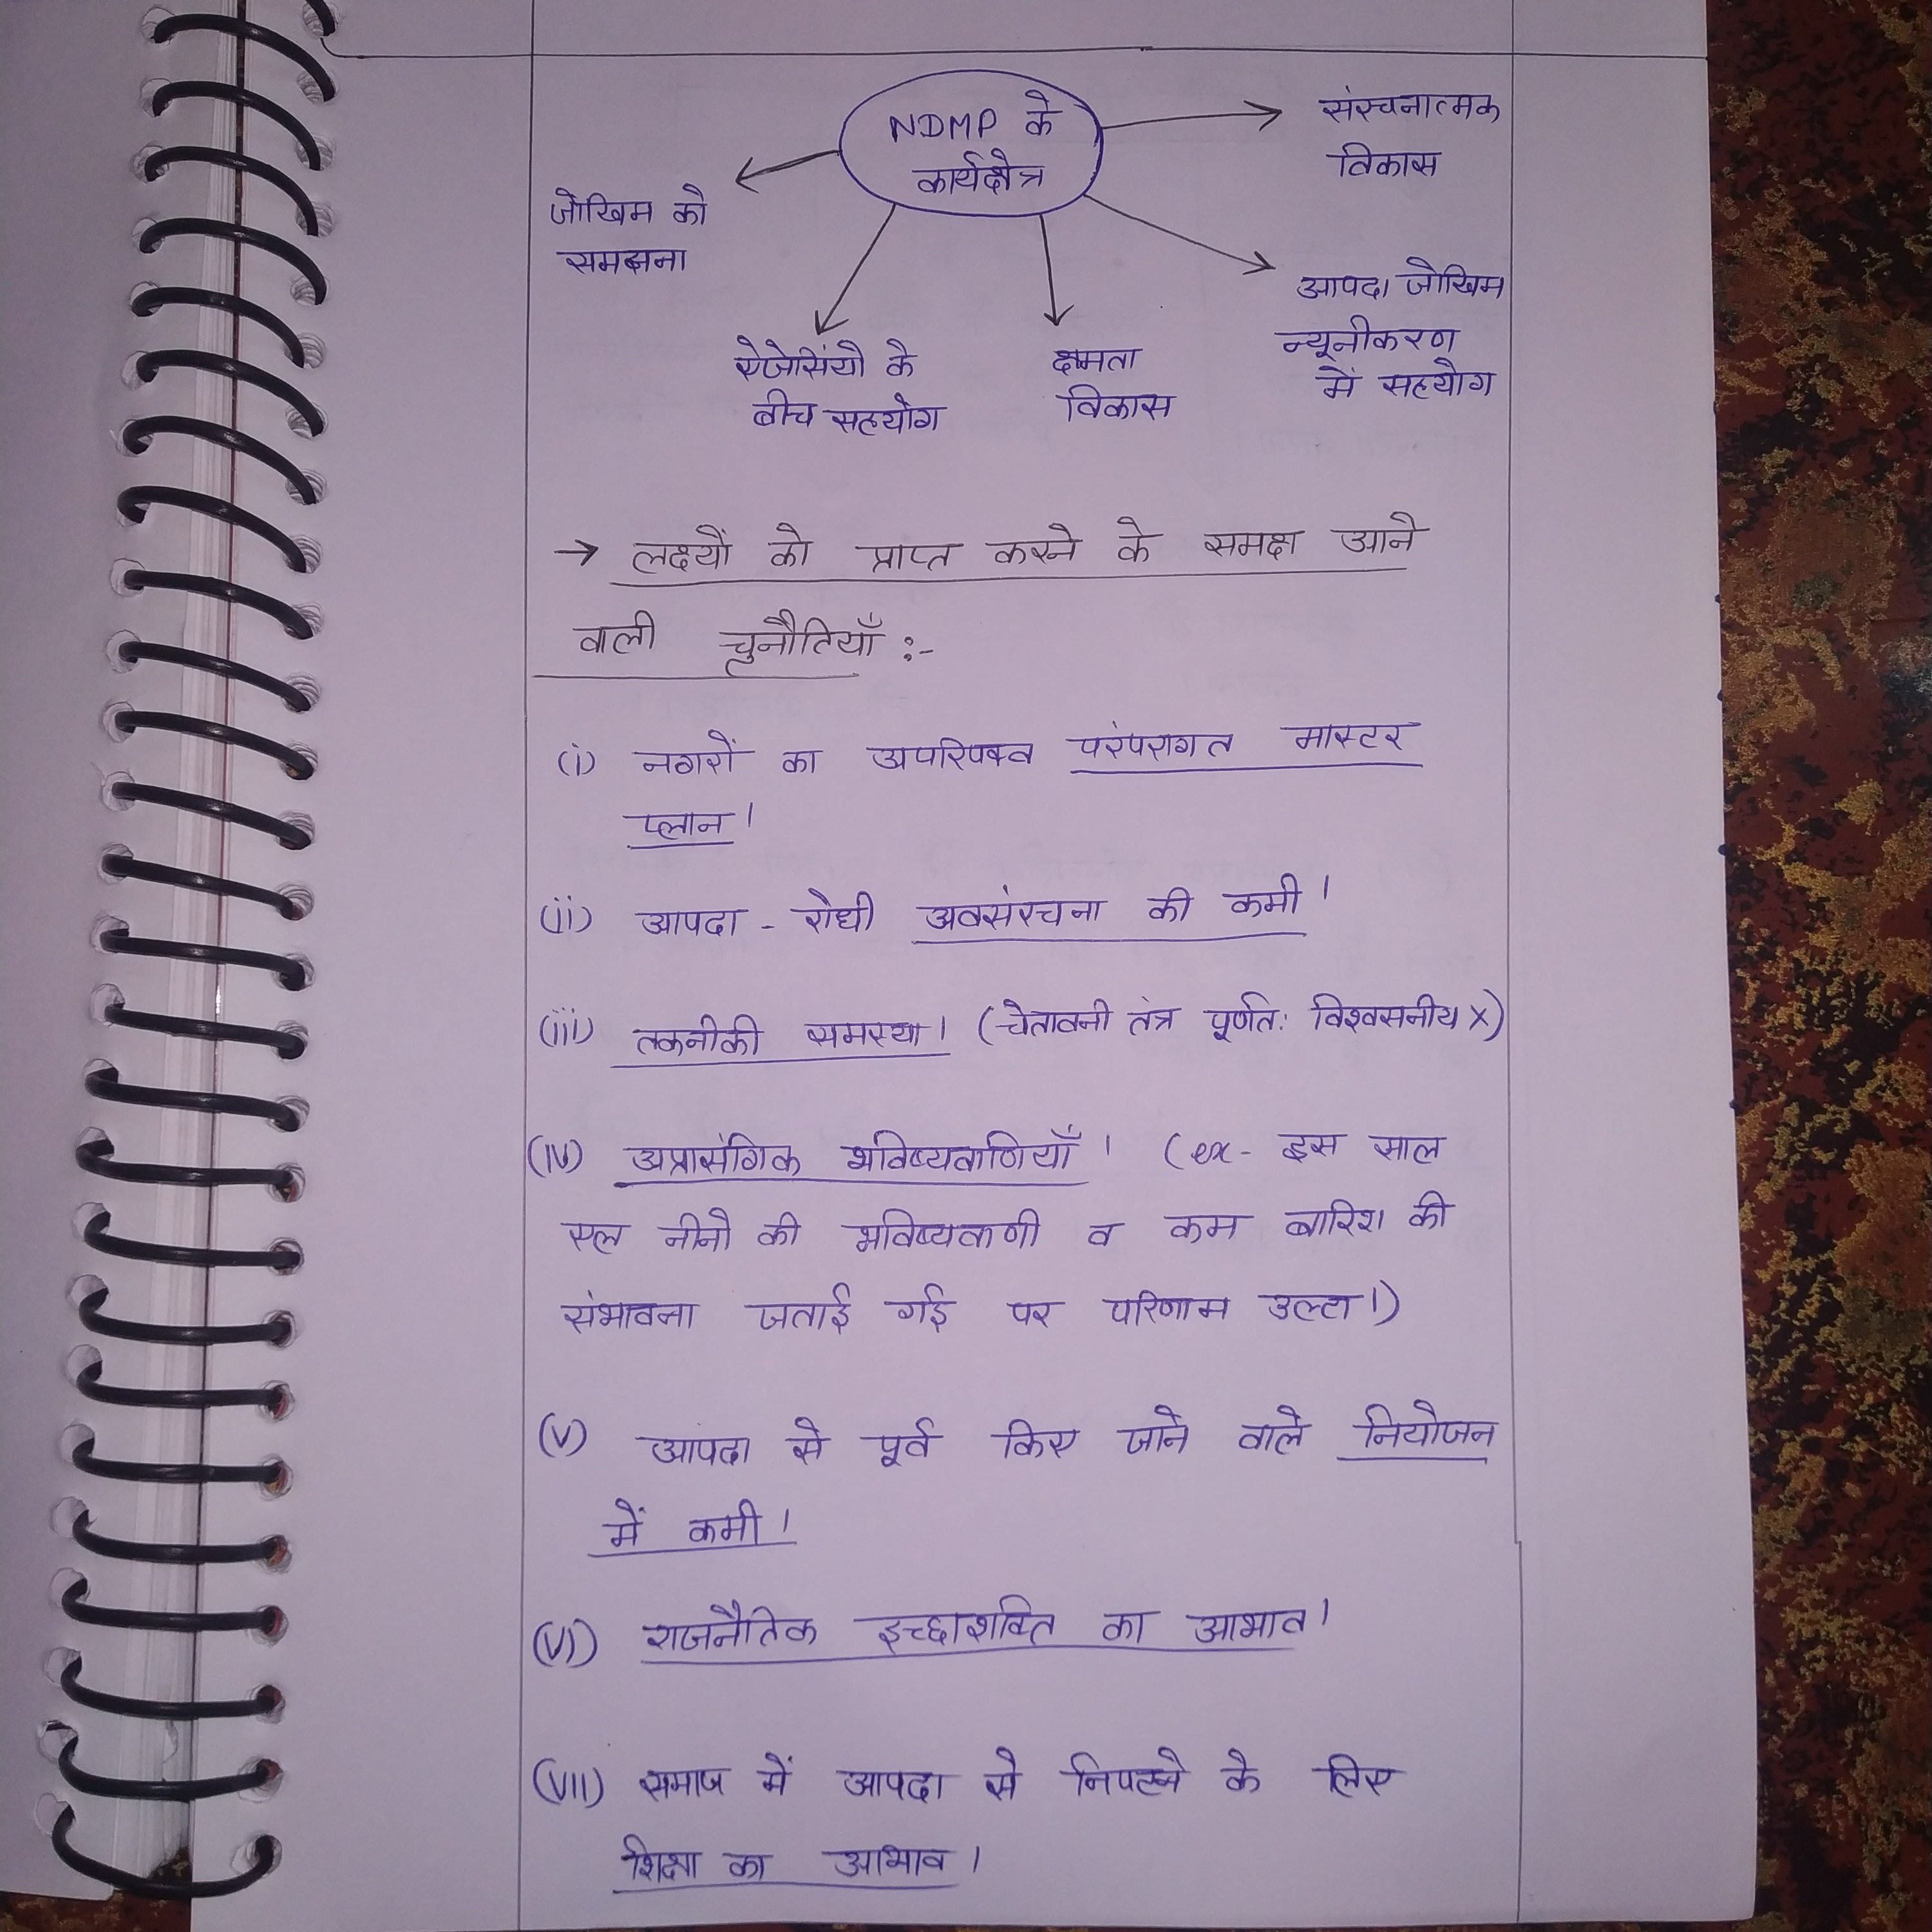 NDMP के
कार्यक्षेत्र
संरचनात्मक
विकास
जोखिम को
समझना
ऐजेसिंयो के
बीच सहयोग
क्षमता
विकास
आपदा जोखिम
न्यूनीकरण
में सहयोग
→ लक्ष्यों को प्राप्त करने के समक्ष आने
वाली चुनौतियाँ :-
(i) नगरों का अपरिपक्व परंपरागत मास्टर
प्लान ।
(ii) आपदा - रोधी अवसंरचना की कमी ।
(iii) तकनीकी समस्या । (चेतावनी तंत्र पूर्णत: विश्वसनीय X)
(iv) अप्रासंगिक भविष्यवाणियाँ । (ex- इस साल
एल नीनो की भविष्यवाणी व कम बारिश की
संभावना जताई गई पर परिणाम उल्टा ।)
(v) आपदा से पूर्व किए जाने वाले नियोजन
में कमी ।
(vi) राजनैतिक इच्छाशक्ति का आभाव ।
(vii) समाज में आपदा से निपटने के लिए
शिक्षा का आभाव ।